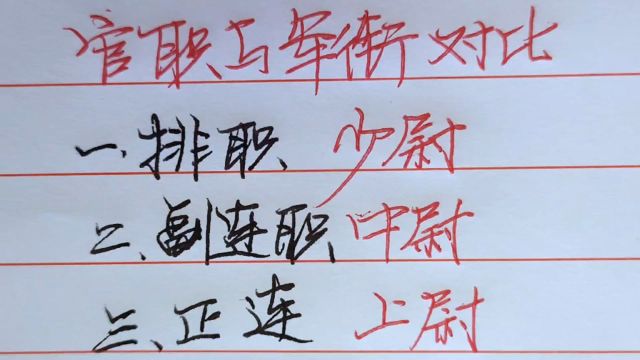 官职与军衔对比
一、排职 少尉
二、副连职 中尉
三、正连 上尉